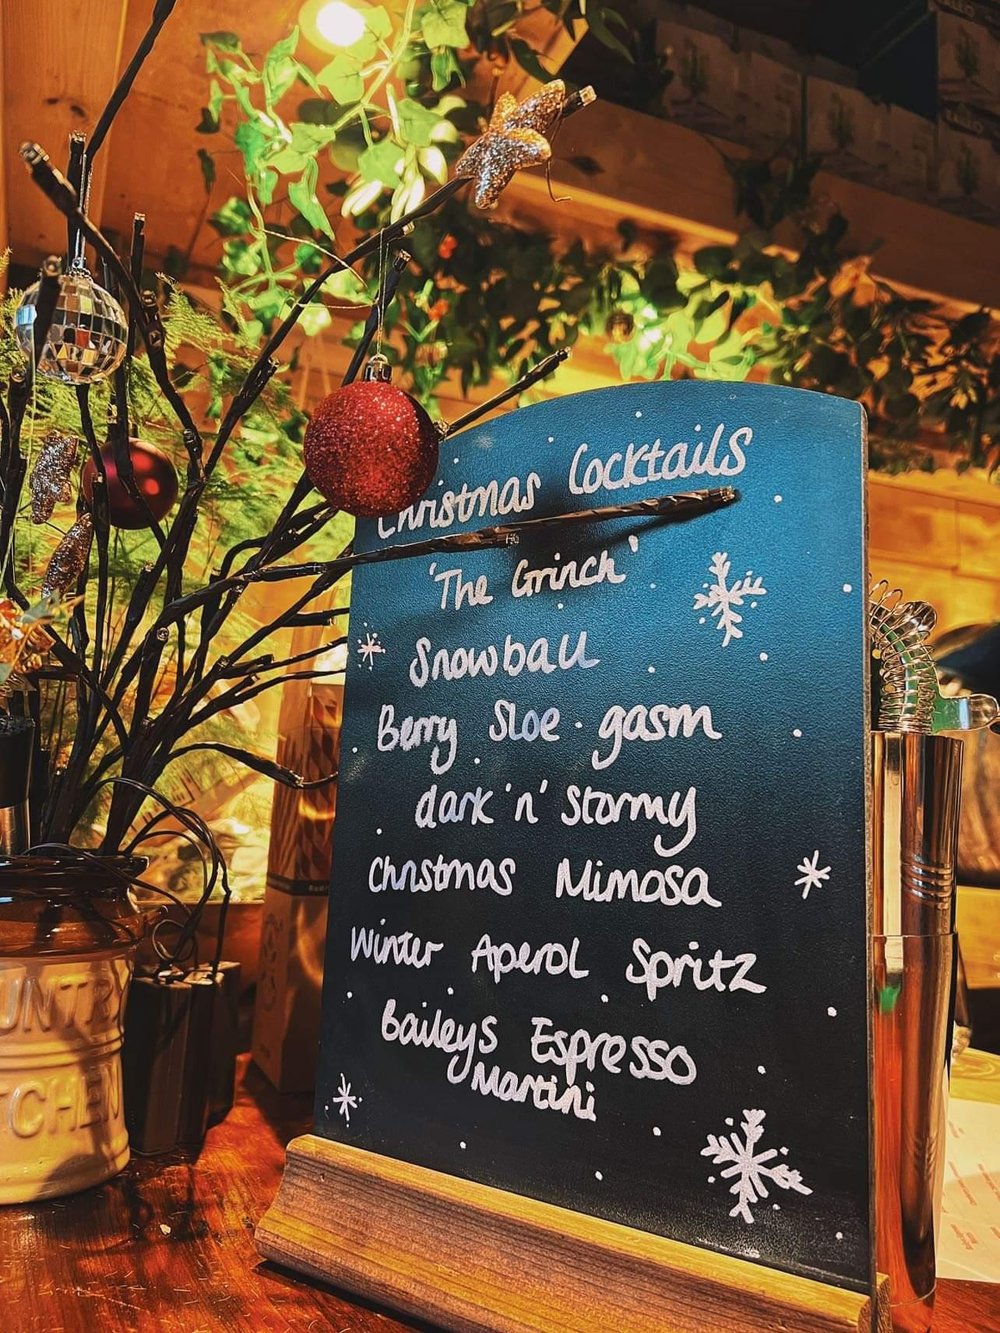 Christmas Cocktails
'The Grinch'
Snowball
Berry Sloe·gasm
dark 'n' Stormy
Christmas Mimosa
Winter Aperol Spritz
Baileys Espresso
Martini